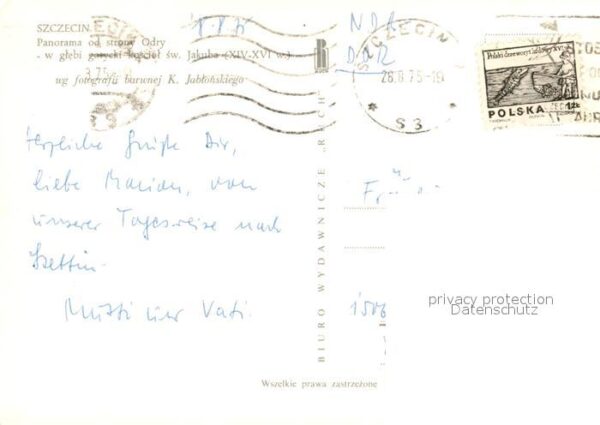 SZCZECIN
Panorama od strony Odry
- w głębi gotycki kościół św. Jakuba (XIV-XVI w.)
ug fotografii barwnej K. Jabłońskiego
NDR
DDR
SZCZECIN
26.8.75-19
* S3 *
Polski drzeworyt ludowy XVI
POLSKA 1zł
Herzliche Grüße Dir,
liebe Marian, von
unserer Tagesreise nach
Stettin.
Mutti und Vati.
Fr
1506
BIURO WYDAWNICZE „RUCH”
privacy protection
Datenschutz
Wszelkie prawa zastrzeżone